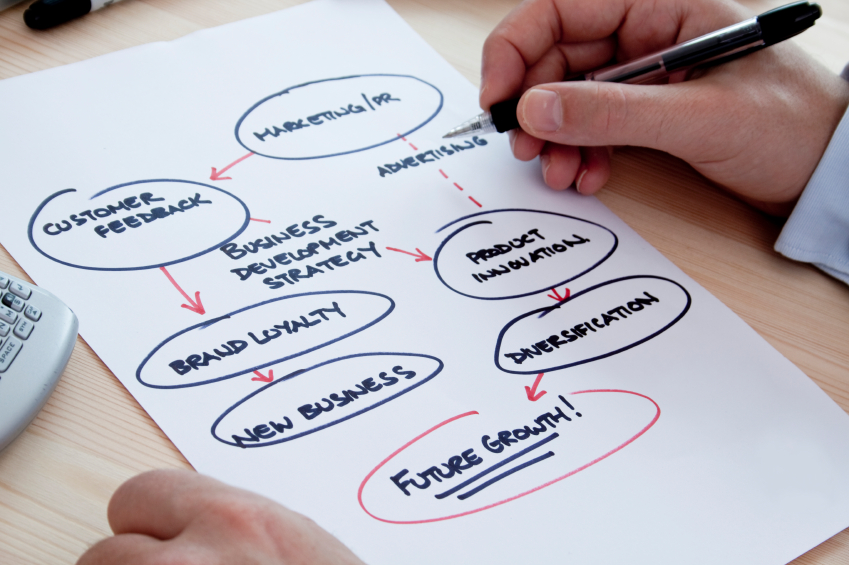 MARKETING/PR
ADVERTISING
CUSTOMER
FEEDBACK
BUSINESS
DEVELOPMENT
STRATEGY
PRODUCT
INNOVATION.
BRAND LOYALTY
DIVERSIFICATION
NEW BUSINESS
FUTURE GROWTH!
SPACE